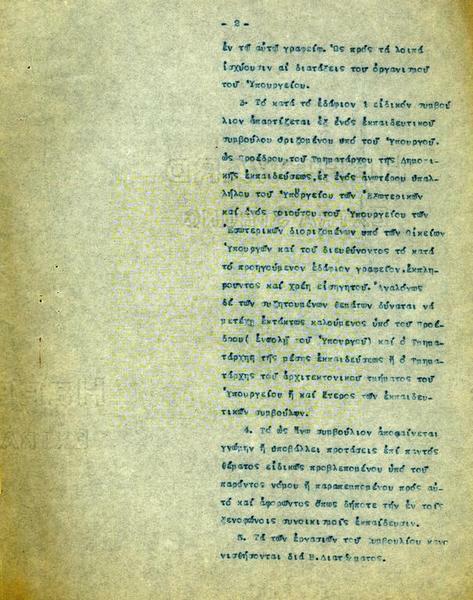 - 2 -
ἐν τῷ αὐτῷ γραφείῳ. Ὡς πρός τά λοιπά
ἰσχύουσιν αἱ διατάξεις τοῦ ὀργανισμοῦ
τοῦ Ὑπουργείου.
3. Τό κατά τό ἐδάφιον 1 εἰδικόν συμβού
λιον ἀπαρτίζεται ἐξ ἑνός ἐκπαιδευτικοῦ
συμβούλου ὁριζομένου ὑπό τοῦ Ὑπουργοῦ,
ὡς προέδρου, τοῦ Τμηματάρχου τῆς Δημοτι-
κῆς ἐκπαιδεύσεως, ἐξ ἑνός ἀνωτέρου ὑπαλ-
λήλου τοῦ Ὑπουργείου τῶν Ἐξωτερικῶν
καί ἑνός τοιούτου τοῦ Ὑπουργείου τῶν
Ἐσωτερικῶν διοριζομένων ὑπό τῶν οἰκείων
Ὑπουργῶν καί τοῦ διευθύνοντος τό κατά
τό προηγούμενον ἐδάφιον γραφεῖον, ἐκπλη-
ροῦντος καί χρέη εἰσηγητοῦ. Ἀναλόγως
δέ τῶν συζητουμένων θεμάτων δύναται νά
μετέχῃ ἐκτάκτως καλούμενος ὑπό τοῦ Προέ-
δρου( ἐντολῇ τοῦ Ὑπουργοῦ) καί ὁ Τμημα-
τάρχης τῆς μέσης ἐκπαιδεύσεως ἤ ὁ Τμημα-
τάρχης τοῦ ἀρχιτεκτονικοῦ τμήματος τοῦ
Ὑπουργείου ἤ καί ἕτερος τῶν ἐκπαιδευ-
τικῶν συμβούλων.
4. Τό ὡς ἄνω συμβούλιον ἀποφαίνεται
γνώμην ἤ ὑποβάλλει προτάσεις ἐπί παντός
θέματος εἰδικῶς προβλεπομένου ὑπό τοῦ
παρόντος νόμου ἤ παραπεμπομένου πρός αὐ-
τό καί ἀφορῶντος ὅπως δήποτε τήν ἐν τοῖς
ξενοφώνοις συνοικισμοῖς ἐκπαίδευσιν.
5. Τά τῶν ἐργασιῶν τοῦ Συμβουλίου κανο
νισθήσονται διά Β. Διατάγματος.